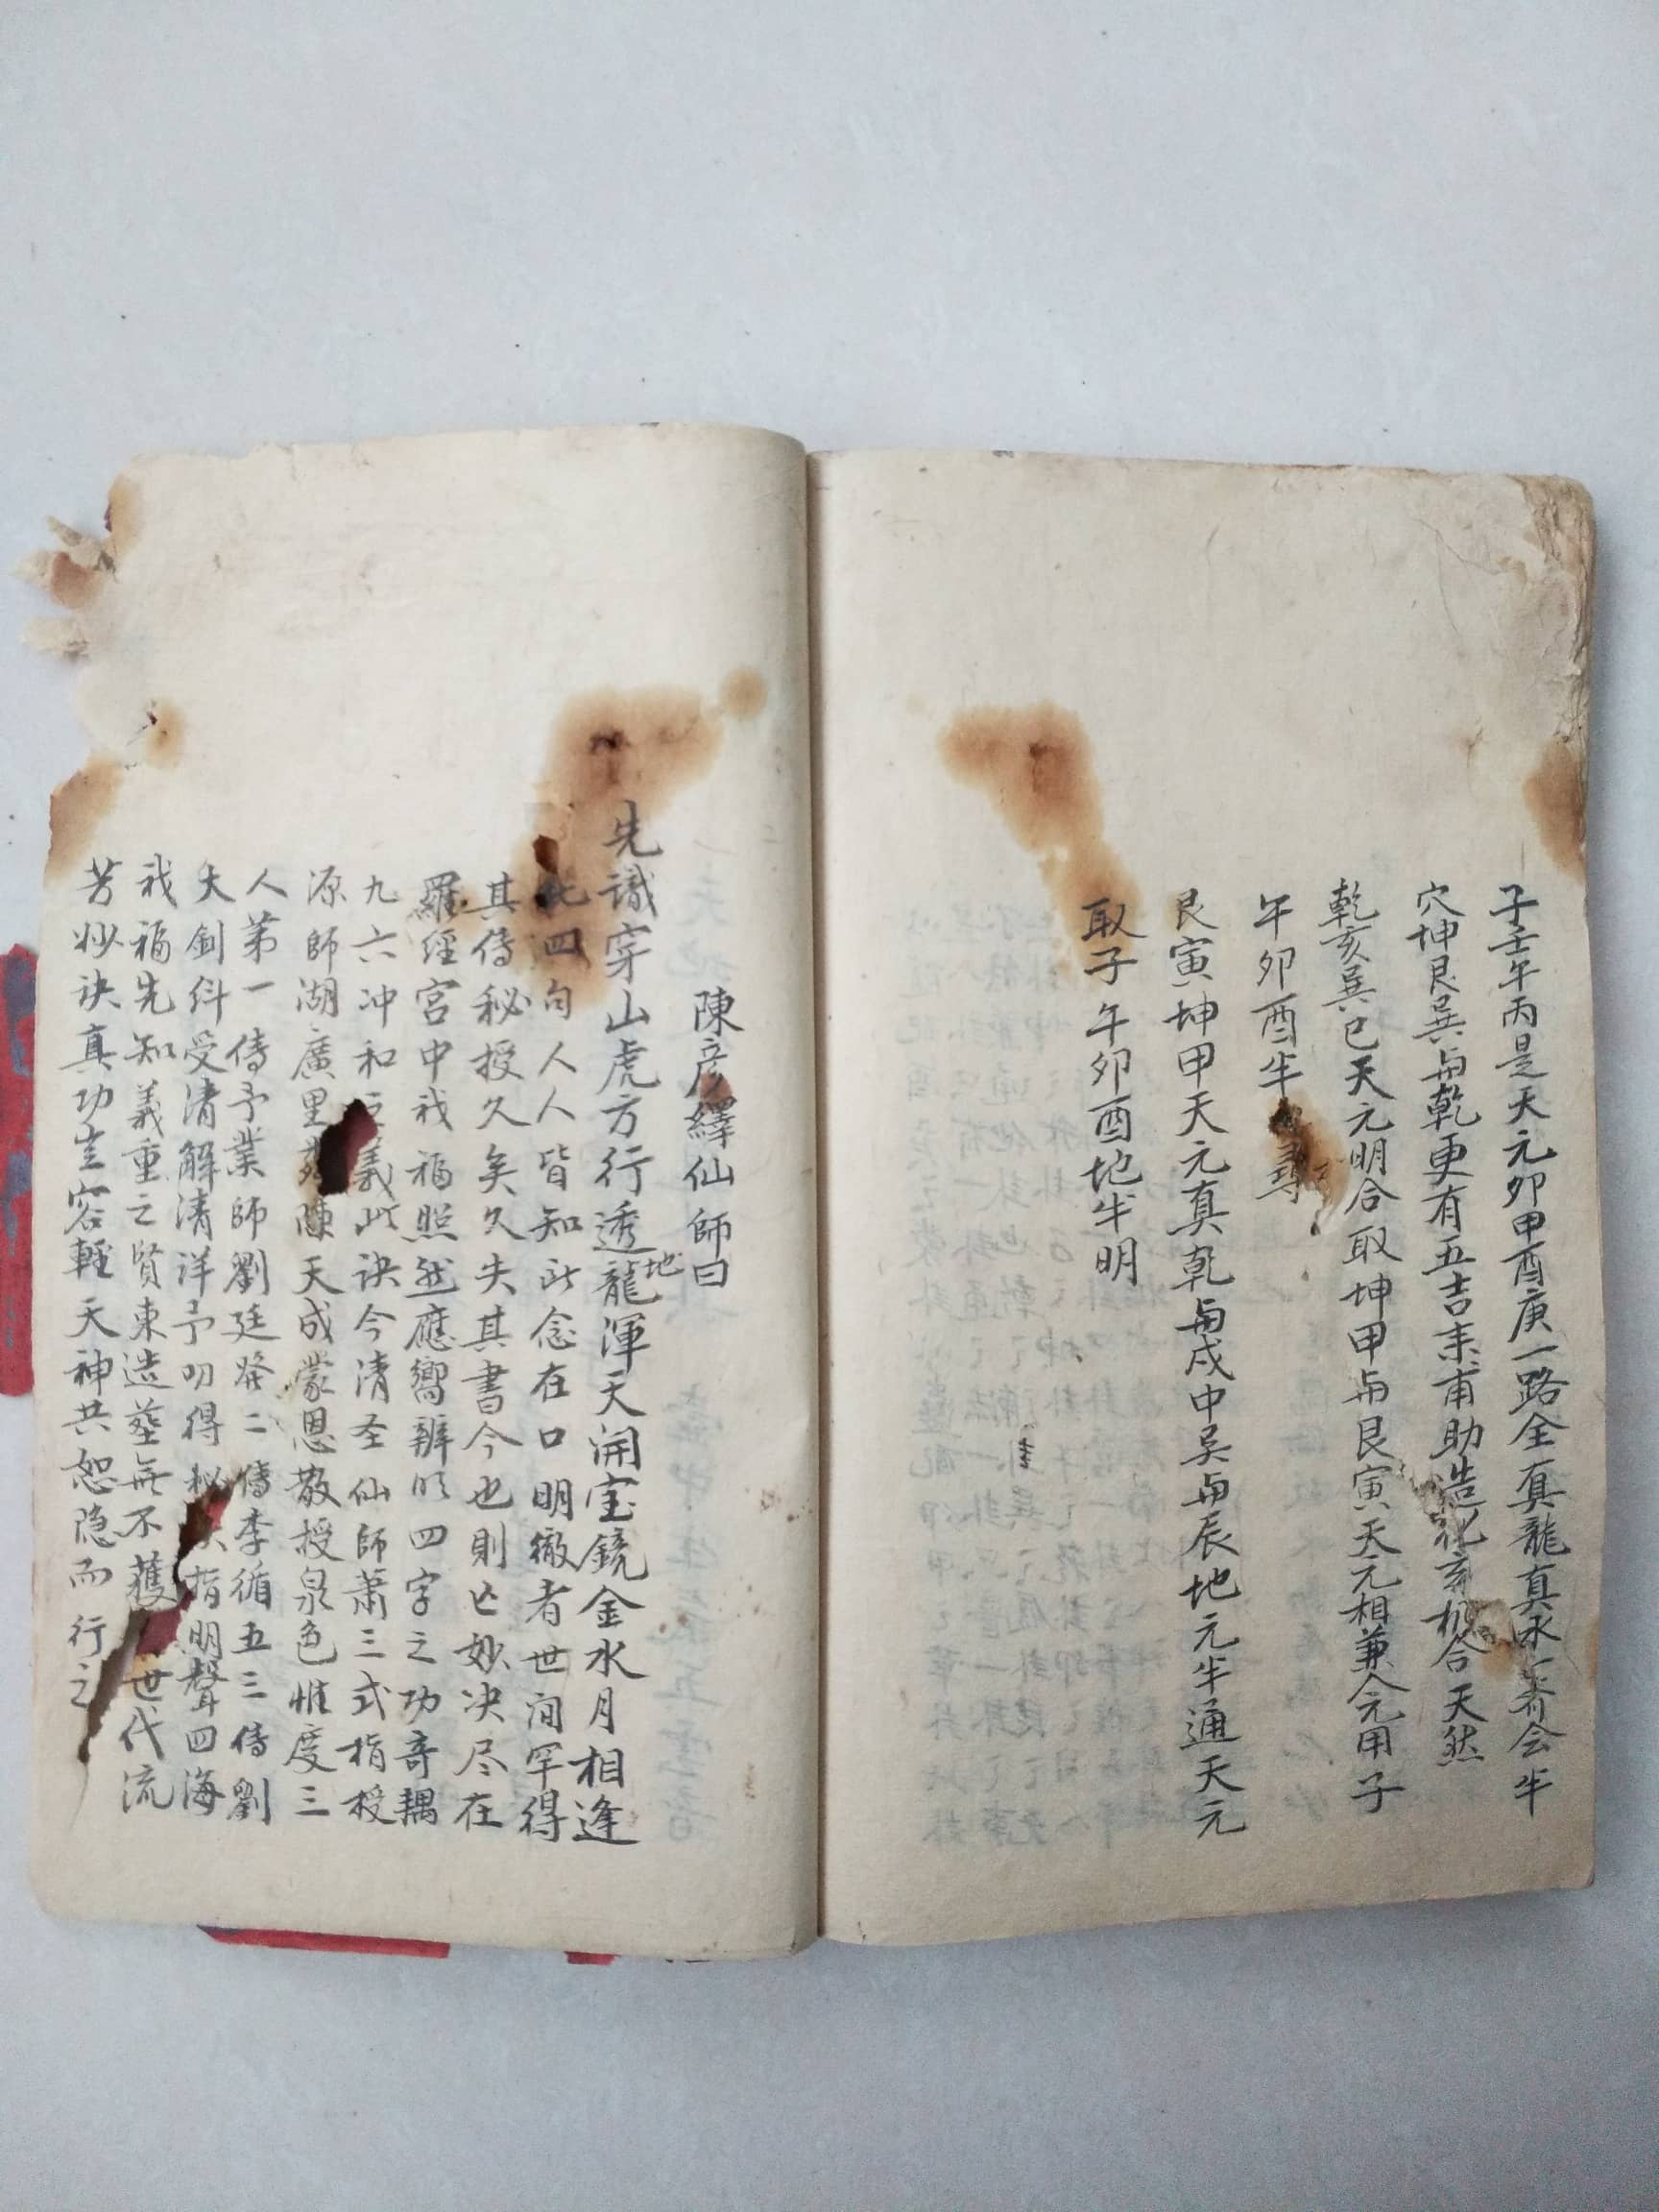 子壬午丙是天元卯甲酉庚一路全真龍真水一者会半
穴坤艮巽与乾更有五吉来甫助造化玄机合天然
乾亥巽巳天元明合取坤甲与艮寅天元相兼人元用子
午卯酉半尋
艮寅坤甲天元真乾与戌中吴与辰地元半通天元
取子午卯酉地半明
陳彦繹仙師曰
先識穿山虎方行透地龍渾天開宝鏡金水月相逢
此四句人人皆知所念在口明徹者世间罕得
其傳秘授久矣久失其書今也則亡妙决尽在
羅經宮中我福照然應嚮辨明四字之功奇耦
九六冲和之義此诀今清圣仙師蕭三式指授
源師湖廣里陳天成蒙恩敬授泉色惟度三
人第一傳予業師劉廷發二傳李循五三傳劉
天劍糾受清解清详予叨得秘诀指明聲四海
我福先知義重之賢東造墓無不獲世代流
芳妙诀真功豈容輕天神共恕隐而行之